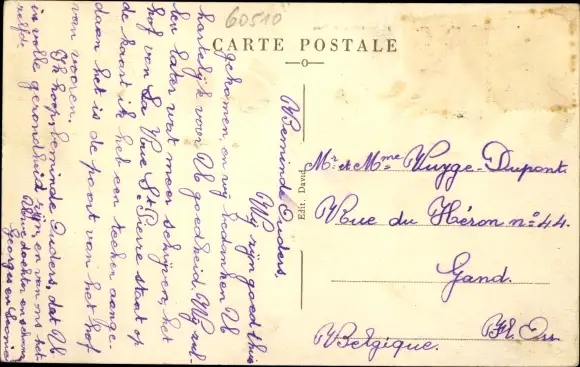 60510
CARTE POSTALE
Edit. David
Beminde Ouders,
Wij zijn goed thuis
gekomen, en wij bedanken U
hartelijk voor U goedheid. Wij zul-
len later wat meer schrijven, het
hof van La Vue St Pierre staat op
de kaart ik heb een teeken aange-
daan het is de poort van het hof
van vooren.
Ik hoop beminde Ouders, dat U
in volle gezondheid zijn en van ons het
zelfde
Uwe dochter en schoonz
Georges en
Mr et Mme Vuyge-Dupont.
Rue du Héron no 44.
Gand.
Fl. Or.
Belgique.